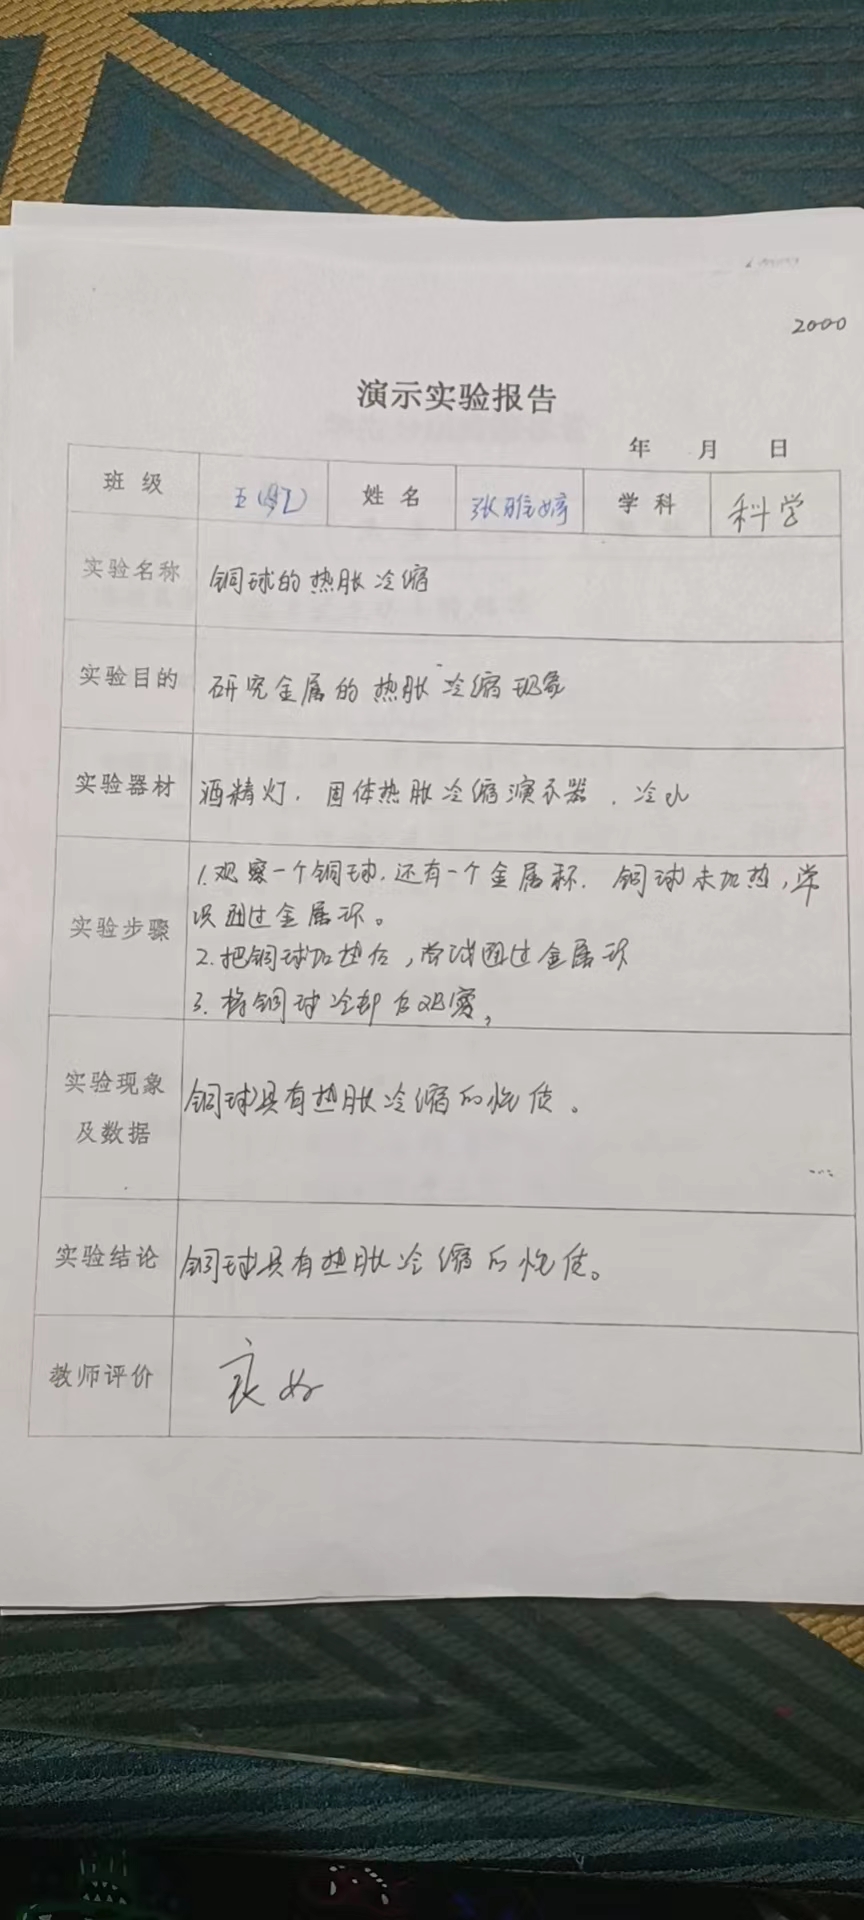 2000
演示实验报告
年 月 日
班级 姓名 张雅婷 学科 科学
实验名称 铜球的热胀冷缩
实验目的 研究金属的热胀冷缩现象
实验器材 酒精灯、固体热胀冷缩演示器、冷水
实验步骤 1.观察一个铜球,还有一个金属环. 铜球未加热,尝
试通过金属环。
2.把铜球加热后,尝试通过金属环
3.将铜球冷却后观察,
实验现象及数据 铜球具有热胀冷缩的性质。
实验结论 铜球具有热胀冷缩的性质。
教师评价 良好